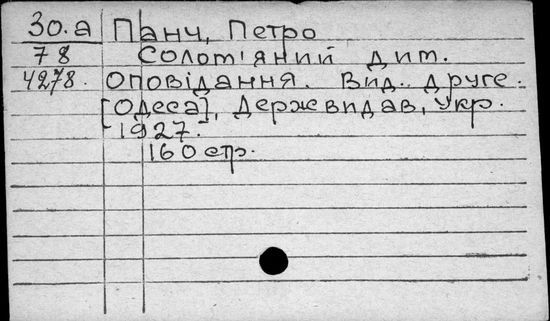 30.а Панч, Петро
78 Солом'яний дит.
4278. оповідання. Вид. друге.
[Одеса], Держвидав, Укр.
1927.
160 стр.